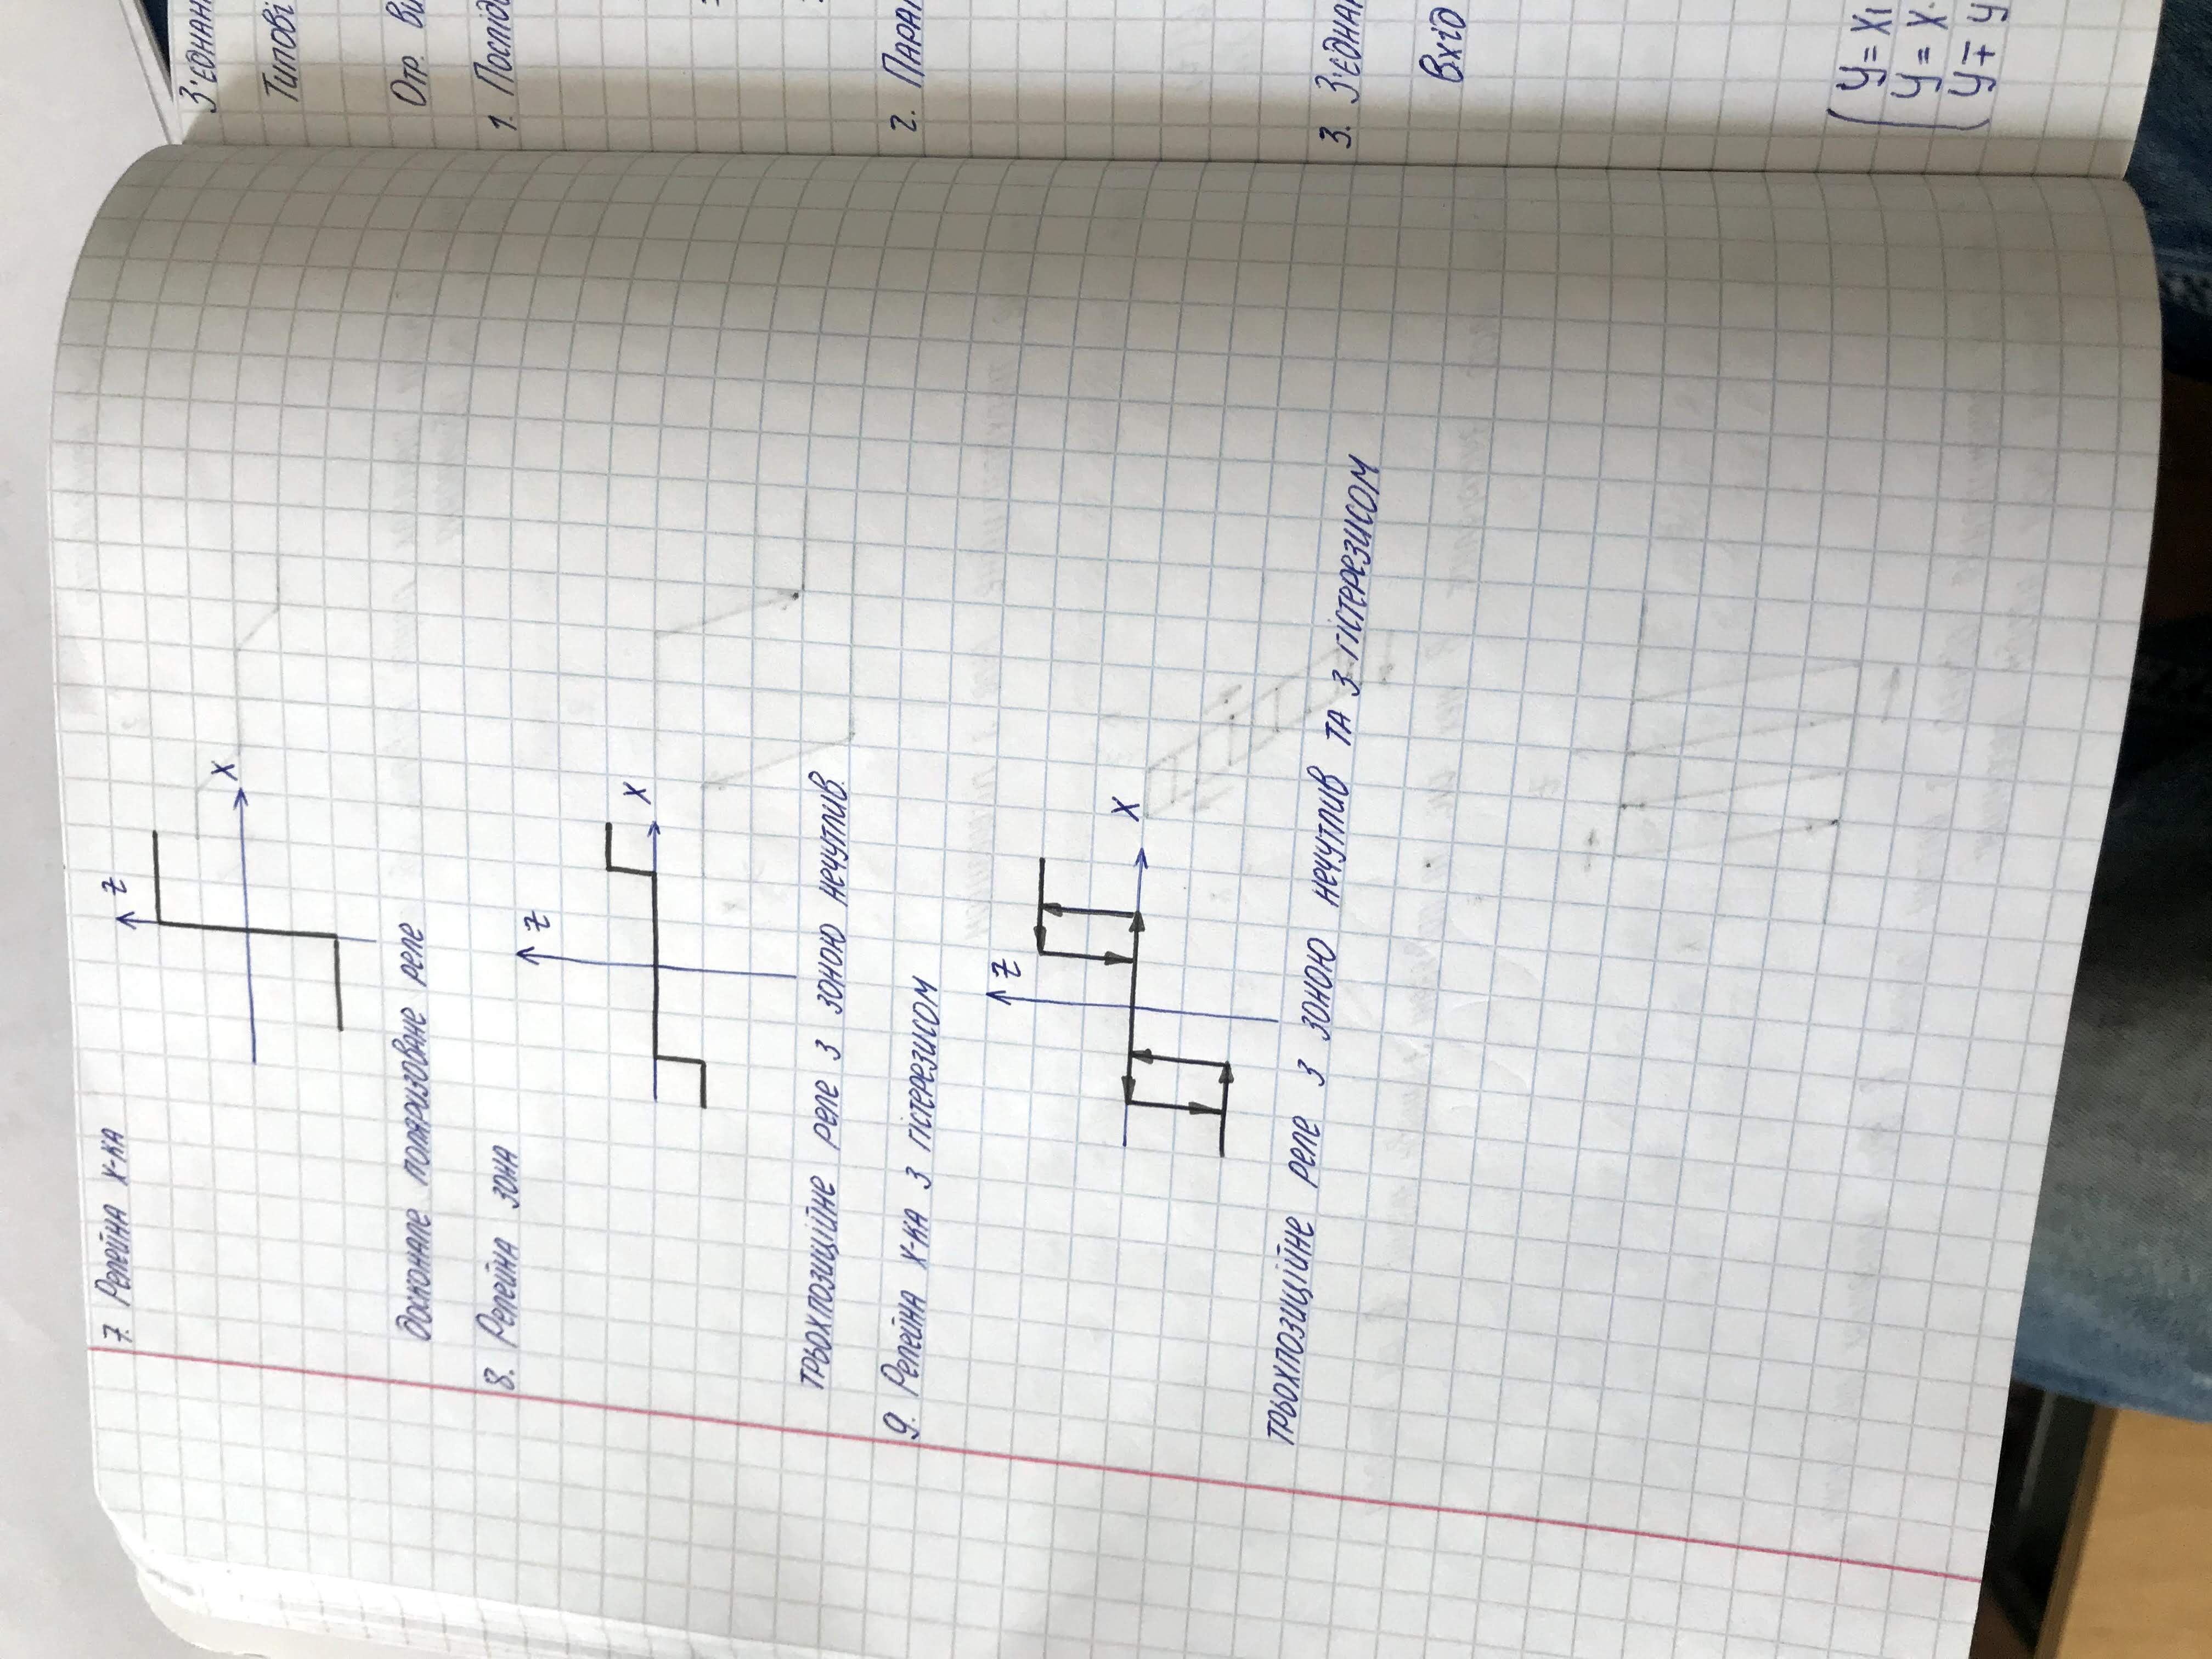 7. Релейна х-ка
z
x
досконале поляризоване реле
8. Релейна зона
z
x
трьохпозиційне реле з зоною нечутлив.
9. Релейна х-ка з гістерезисом
z
x
трьохпозиційне реле з зоною нечутлив та з гістерезисом
Типові
Отр.
1.
2.
3.
Вхід
y = x1
y = x
y ∓ y